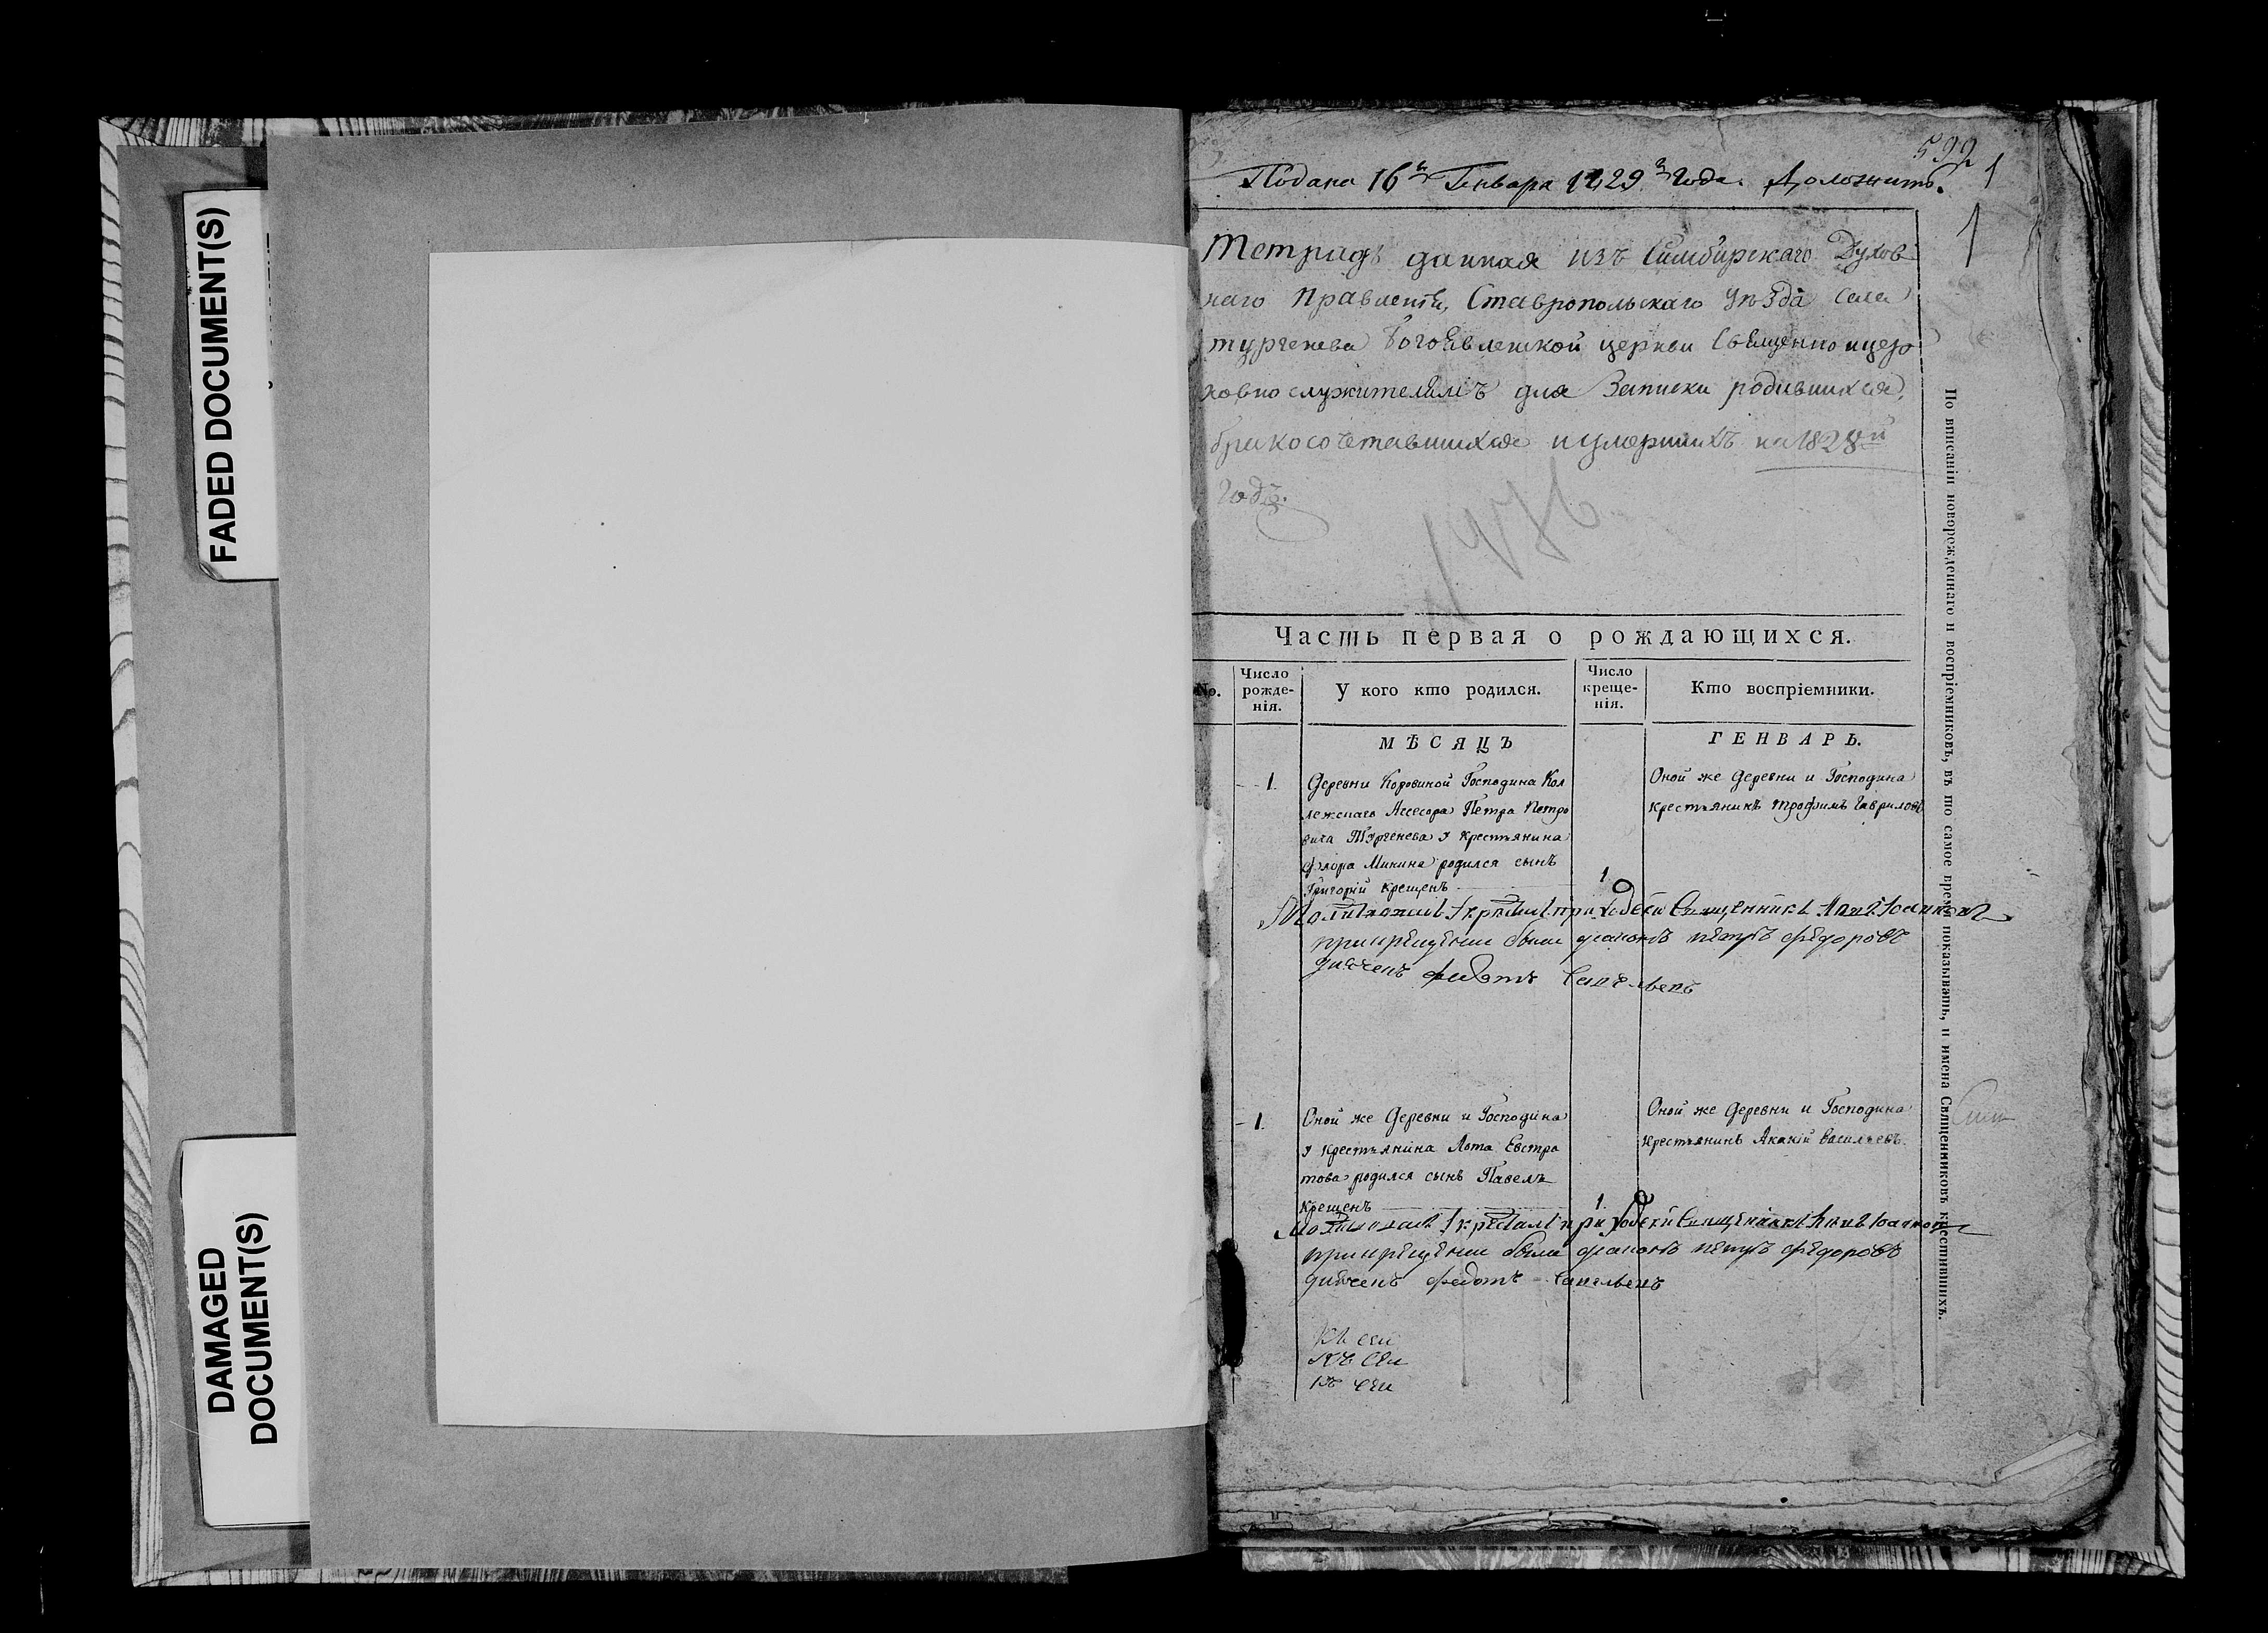 FADED DOCUMENT(S)
DAMAGED
DOCUMENT(S)
599
Подана 16 Генваря 1829 года. Доложить. 1
1
Тетрадь данная изъ Симбирскаго Духов
наго Правленія, Ставропольскаго уѣзда села
тургенева Богоявленской церкви Священно и цер
ковно служителямъ для Записки родившихся,
бракосочетавшихся и умершихъ на 1828й
годъ.
Часть первая о рождающихся.
No.
Число
рожде-
нія.
У кого кто родился.
Число
креще-
нія.
Кто воспріемники.
МѢСЯЦЪ
ГЕНВАРЬ.
1. Деревни Коровиной Господина Кол
лежскаго Ассесора Петра Петро
вича Тургенева у крестьянина
Флора Минина родился сынъ
Григорій крещенъ 1
Оной же Деревни и Господина
крестьянинъ Трофимъ Гавриловъ
приходскій Священникъ
при крещеніи были діаконъ петръ федоровъ
дьячекъ федотъ
1. Оной же Деревни и Господина
у крестьянина Лота Евстра
това родился сынъ Павелъ
крещенъ 1
Оной же Деревни и Господина
крестьянинъ Акакій Васильевъ.
приходскій Священникъ
при крещеніи были діаконъ петръ федоровъ
дьячекъ федотъ
къ сей
къ сей
къ сей
По вписаніи новорожденнаго и воспріемниковъ, въ то самое время показывать, и имена Священниковъ крестившихъ.